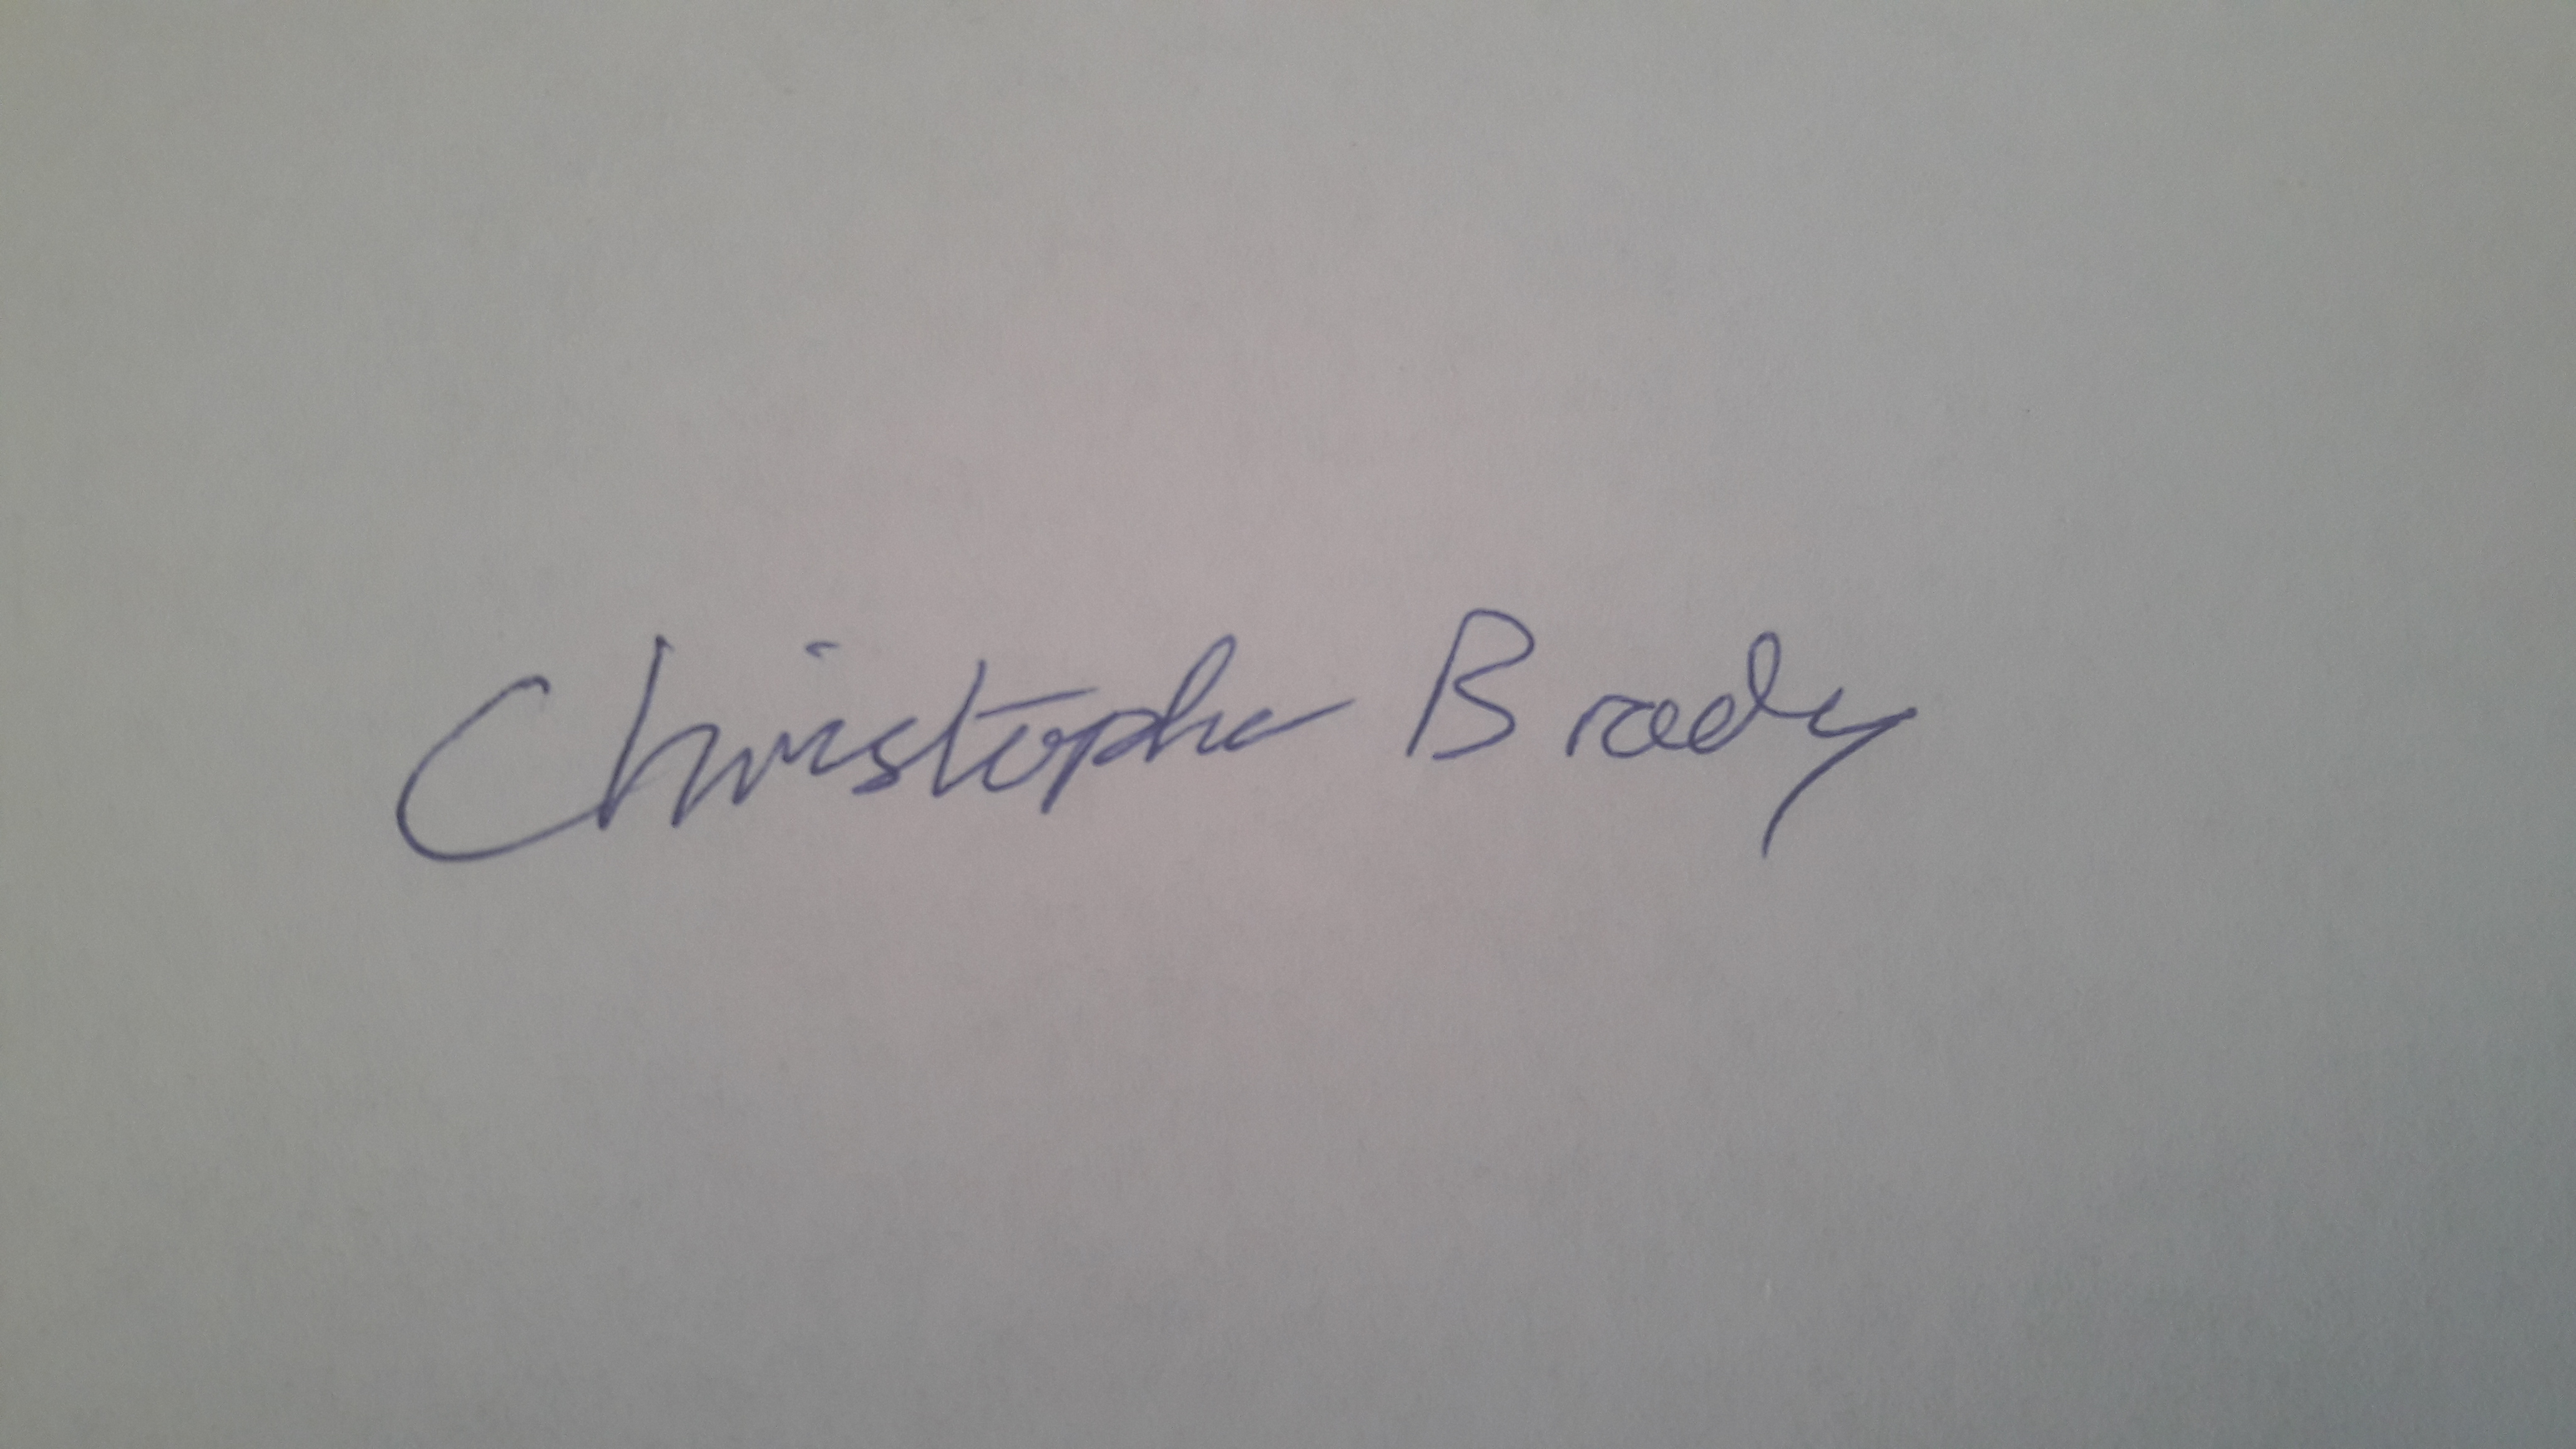 Christopher Brady